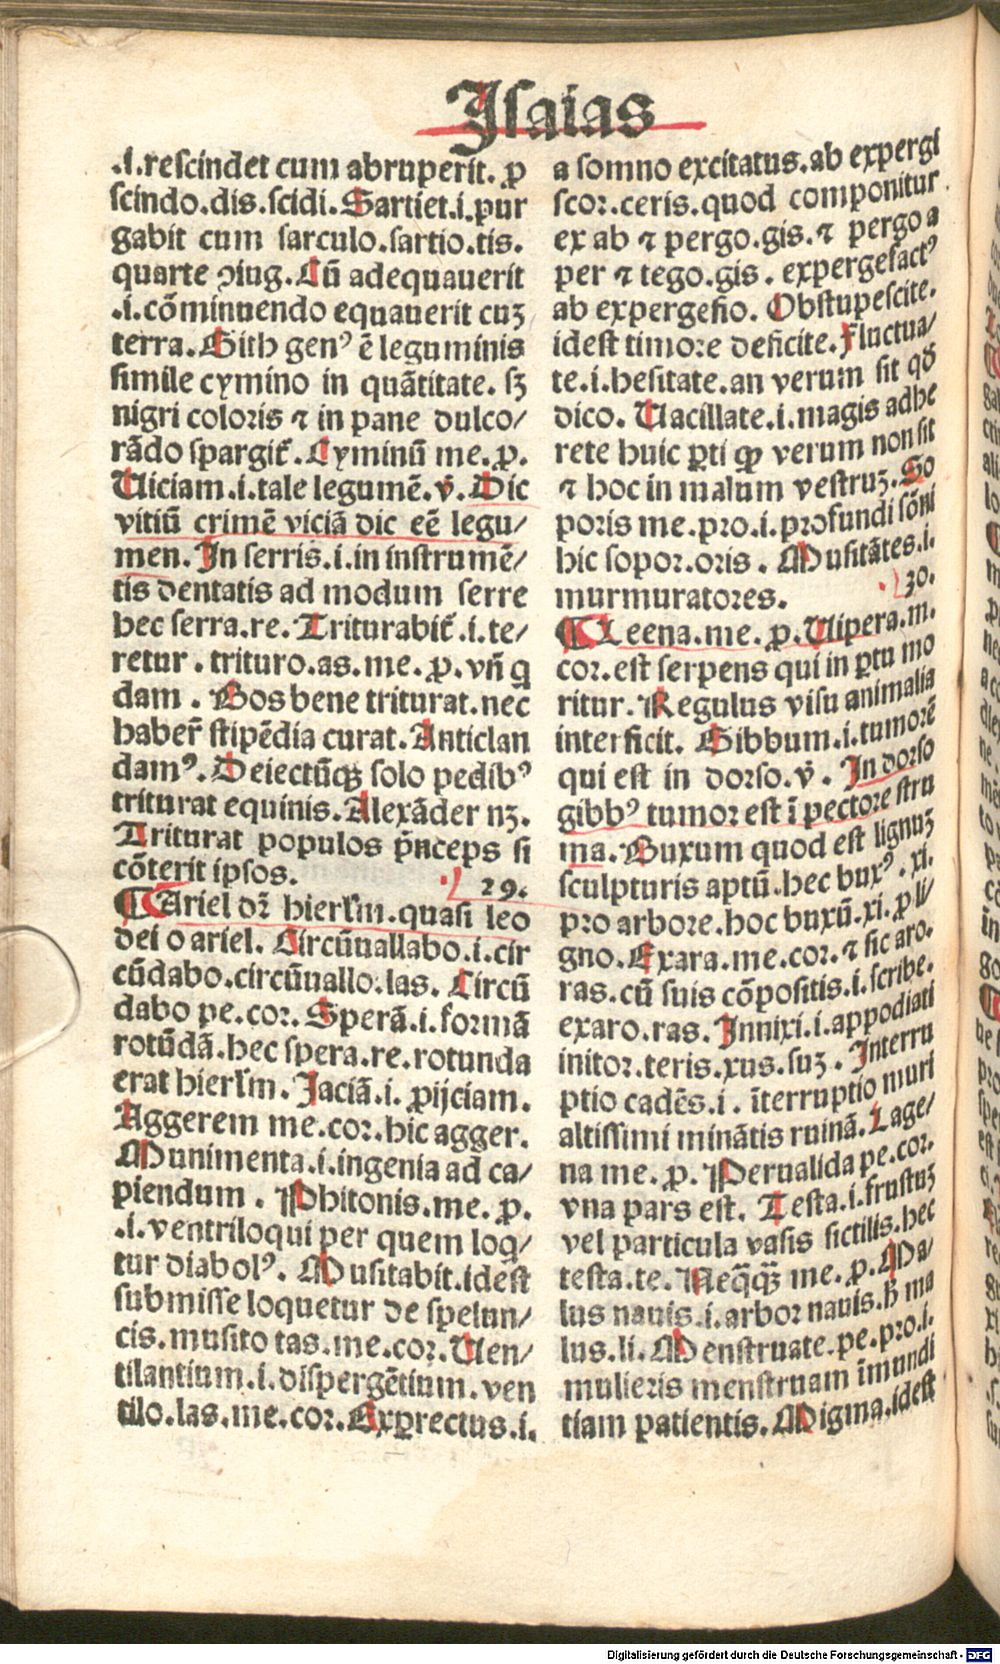 Isaias
.i.rescindet cum abruperit. ꝓ
scindo.dis.scidi. Sartiet.i.pur
gabit cum sarculo.sartio.tis.
quarte ꝯiug. Cū adequauerit
.i.cōminuendo equauerit cuꝫ
terra. Gith genꝰ ē leguminis
simile cymino in quātitate. sꝫ
nigri coloris ⁊ in pane dulco/
rādo spargit᷑. Cyminū me. ꝓ.
Uiciam.i.tale legumē. v̄. Dic
vitiū crimē viciā dic eē legu/
men. In serris.i.in instrumē/
tis dentatis ad modum serre
hec serra.re. Triturabit᷑.i.te/
retur. trituro.as.me.ꝓ. vn̄ q
dam. Bos bene triturat. nec
haber᷑ stipēdia curat. Anticlan
damꝰ. Deiectūqꝫ solo pedibꝰ
triturat equinis. Alexāder nꝫ.
Triturat populos p̄nceps si
cōterit ipsos.
29.
¶ Ariel dr̄ hierl̄m. quasi leo
dei o ariel. Circūuallabo.i.cir
cūdabo.circūuallo.las. Circū
dabo pe.cor. Sperā.i.formā
rotūdā. hec spera.re. rotunda
erat hierl̄m. Jaciā.i. ꝓijciam.
Aggerem me.cor. hic agger.
Munimenta.i.ingenia ad ca/
piendum. Phitonis.me.p.
.i.ventriloqui per quem loq̄/
tur diabolꝰ. Musitabit.idest
submisse loquetur de spelun/
cis. musito tas.me.cor. Uen/
tilantium.i.dispergētium. ven
tilo.las.me.cor. Exꝑrectus.i.
a somno excitatus. ab expergi
scor.ceris. quod componitur
ex ab ⁊ pergo.gis. ⁊ pergo a
per ⁊ tego.gis. expergefactꝰ
ab expergefio. Obstupescite.
idest timore deficite. Fluctua/
te.i.hesitate. an verum sit qd̄
dico. Uacillate.i.magis adhe
rete huic ꝑti ꝙ verum non sit
⁊ hoc in malum vestruꝫ. So
poris me.pro.i.profundi sōni
hic sopor.oris. Musitātes.i.
murmuratores.
30.
¶ Leena.me.ꝓ. Uipera.m.
cor. est serpens qui in ꝑtu mo
ritur. Regulus visu animalia
interficit. Gibbum.i.tumorē
qui est in dorso. v̄. In dorso
gibbꝰ tumor est ī pectore stru
ma. Buxum quod est lignuꝫ
sculpturis aptū. hec buxꝰ.xi.
pro arbore. hoc buxū.xi.ꝓ li/
gno. Exara.me.cor. ⁊ sic aro.
ras. cū suis cōpositis.i.scribe.
exaro.ras. Innixi.i.appodiati
initor.teris.xus.suꝫ. Interru
ptio cadēs.i. īterruptio muri
altissimi minātis ruinā. Lage/
na me. ꝓ. Perualida pe.cor.
vna pars est. Testa.i.frustuꝫ
vel particula vasis fictilis. hec
testa.te. Neq̄q̄ꝫ me. ꝓ. Ma/
lus nauis.i.arbor nauis. h̄ ma
lus.li. Menstruate.pe.pro.i.
mulieris menstruam īmundi
tiam patientis. Migma.idest
Digitalisierung gefördert durch die Deutsche Forschungsgemeinschaft - DFG